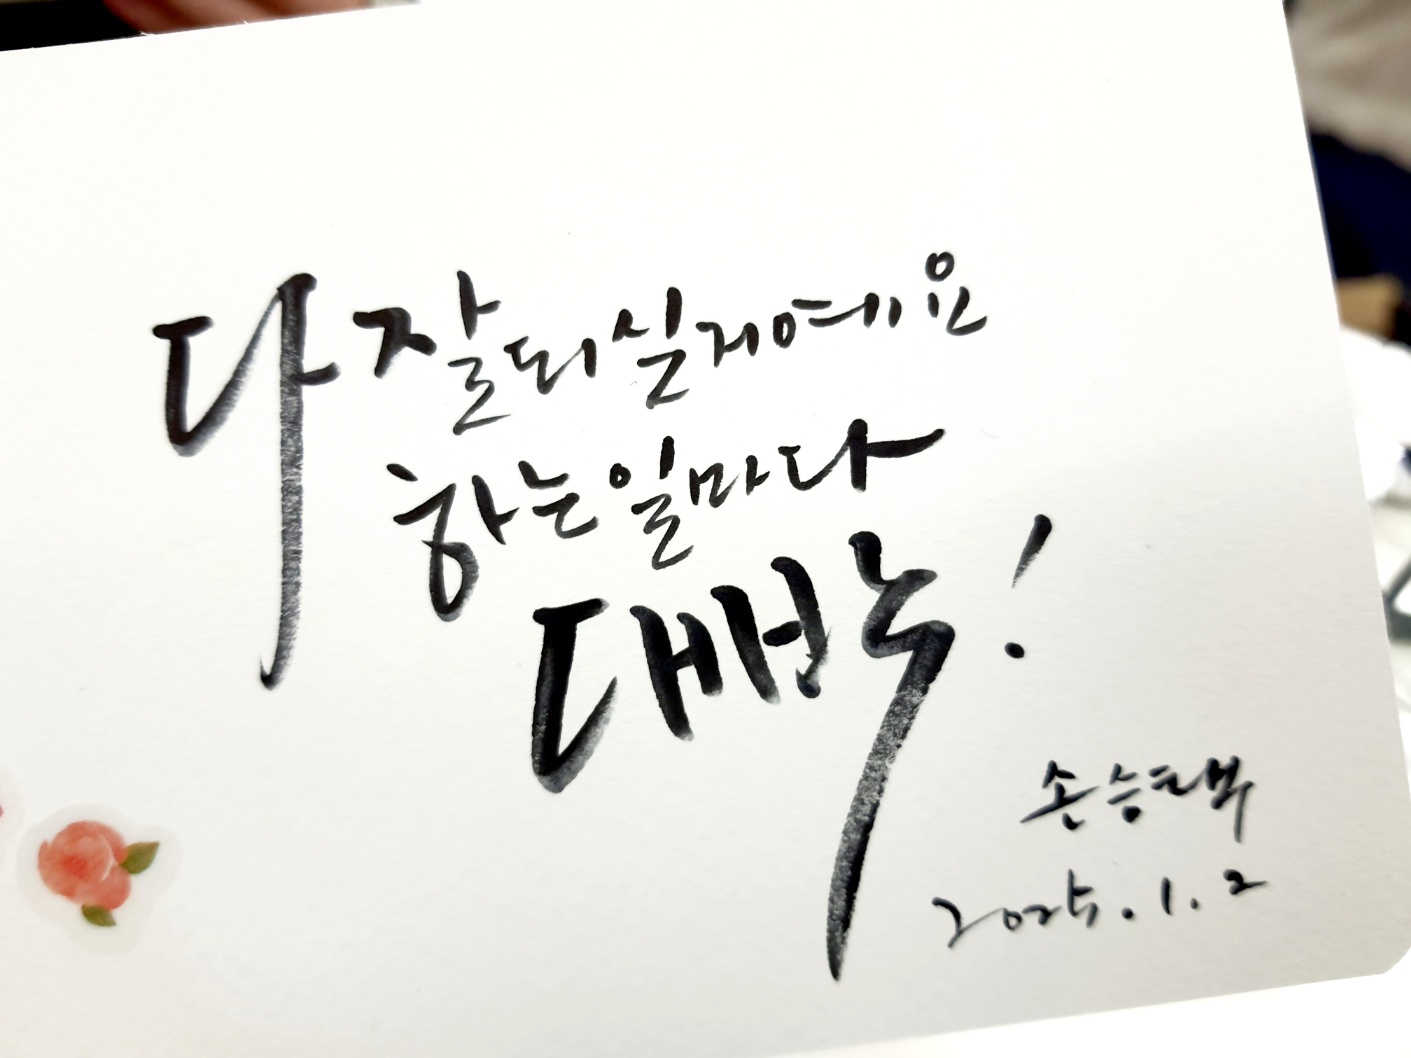 다 잘 되실 거예요
하는 일마다
대박!
손승택
2025.1.2